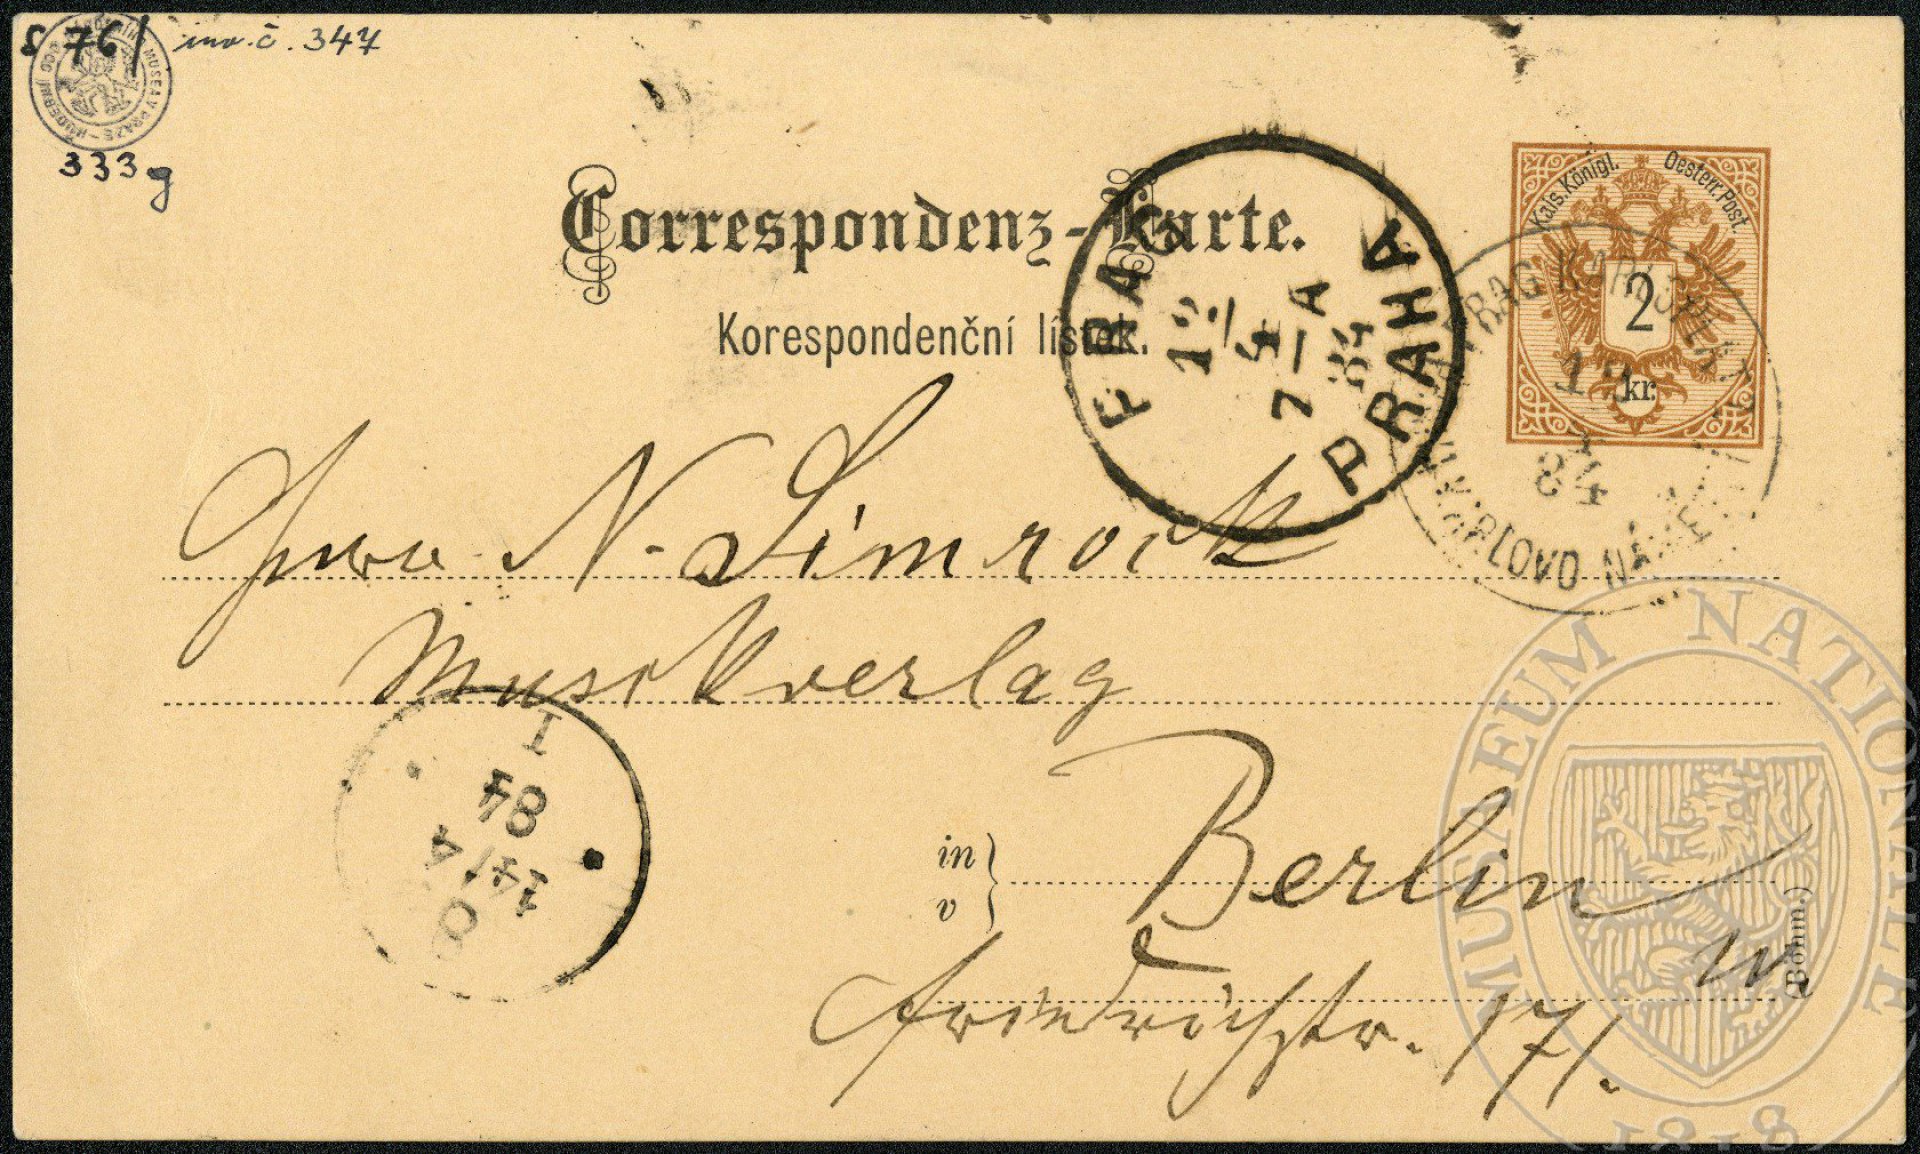 S 76/ inv. č. 347
333g
Kais. Königl. Oesterr. Post.
2
kr.
Correspondenz-Karte.
Korespondenční lístek.
PRAG
PRAHA
12/4
7-A
84
84
KARLOVO
Herrn N. Simrock
Musikverlag
in
v
Berlin
W
Friedrichstr. 171.
(Böhm.)
I
84
14/4
8
MUSAEUM NATIONALE
1818